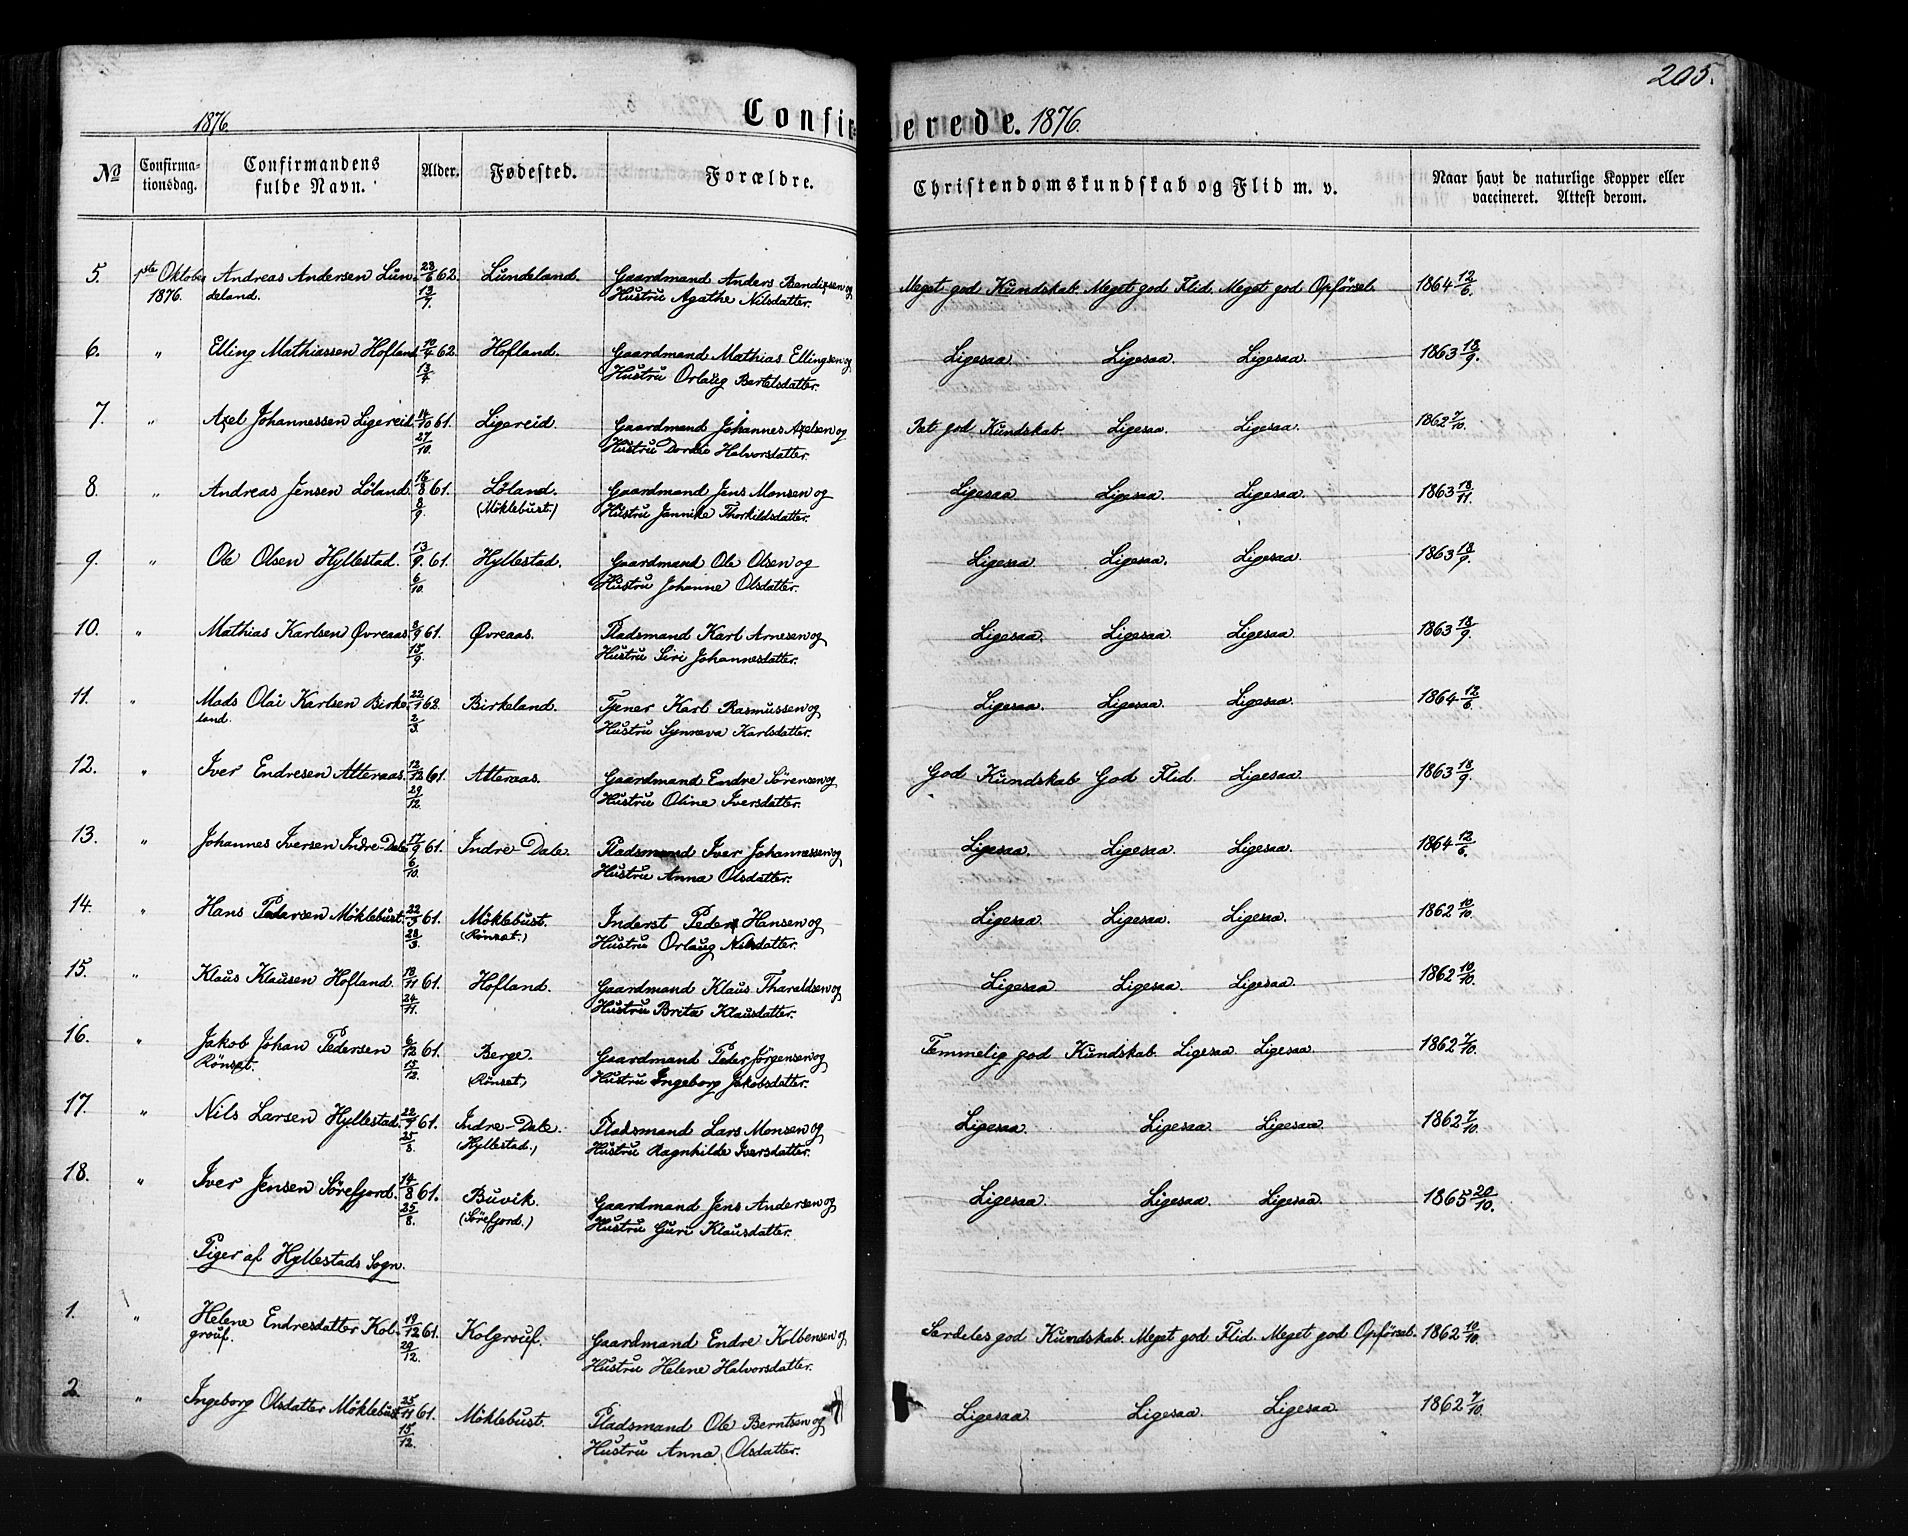 205.
1876.
Confirmerede. 1876.
No Confirmationsdag. Confirmandens fulde Navn. Alder. Fødested. Forældre. Christendomskundskab og Flid m. v. Naar havt de naturlige Kopper eller vaccineret. Attest derom.
5. 1ste Oktober Andreas Andersen Lun- 23/6 62. Lundeland. Gaardmand Anders Bendixsen og Meget god Kundskab. Meget god Flid. Meget god Opførsel. 1864 12/6.
1876. deland. 13/7. Hustru Agathe Nilsdatter.
6. " Elling Mathiassen Hofland. 10/4 62. Hofland. Gaardmand Mathias Ellingsen og Ligesaa. Ligesaa. Ligesaa. 1863 18/9.
13/4 Hustru Orlaug Bertelsdatter.
7. " Axel Johannessen Ligereid. 14/10 61. Ligereid. Gaardmand Johannes Axelsen og Ret god Kundskab. Ligesaa. Ligesaa. 1862 7/10.
27/10. Hustru Dordei Halvorsdatter.
8. " Andreas Jensen Löland. 16/8 61. Löland. Gaardmand Jens Monsen og Ligesaa. Ligesaa. Ligesaa. 1863 18/11.
8/9. (Möklebust.) Hustru Jannike Thorkildsdatter.
9. " Ole Olsen Hyllestad. 13/9. 61. Hyllestad. Gaardmand Ole Olsen og Ligesaa. Ligesaa. Ligesaa. 1863 18/9.
6/10 Hustru Johanne Olsdatter.
10. " Mathias Karlsen Øvreaas. 8/9 61. Øvreaas. Pladsmand Karl Arnesen og Ligesaa. Ligesaa. Ligesaa. 1863 18/9.
15/9. Hustru Siri Johannesdatter.
11. " Mads Olai Karlsen Birke- 22/1 62. Birkeland. Tjener Karl Rasmussen og Ligesaa. Ligesaa. Ligesaa. 1864 12/6.
land. 2/3. Hustru Synneva Karlsdatter.
12. " Iver Endresen Atteraas. 12/12 61. Atteraas. Gaardmand Endre Sørensen og God Kundskab. God Flid. Ligesaa. 1863 18/9.
29/12. Hustru Oline Iversdatter.
13. " Johannes Iversen Indre-Dale. 17/9 61. Indre-Dale. Pladsmand Iver Johannessen og Ligesaa. Ligesaa. Ligesaa. 1864 12/6.
6/10. Hustru Anna Olsdatter.
14. " Hans Pedersen Möklebust. 22/3 61. Möklebust. Inderst Peder Hansen og Ligesaa. Ligesaa. Ligesaa. 1862 10/10.
28/3. (Rønset.) Hustru Orlaug Nilsdatter.
15. " Klaus Klausen Hofland. 18/11 61. Hofland. Gaardmand Klaus Tharaldsen og Ligesaa Ligesaa. Ligesaa. 1862 10/10.
24/11. Hustru Brita Klausdatter.
16. " Jakob Johan Pedersen 6/12 61. Berge. Gaardmand Peder Jørgensen og Temmelig god Kundskab. Ligesaa. Ligesaa. 1862 7/10.
Rønset. 13/12. (Rønset) Hustru Ingeborg Jakobsdatter.
17. " Nils Larsen Hyllestad. 61. Indre-Dale. Pladsmand Lars Monsen og Ligesaa. Ligesaa. Ligesaa. 1862 7/10.
25/8. (Hyllestad.) Hustru Ragnhilde Iversdatter.
18. " Iver Jensen Sörefjord. 14/8 61. Buvik. Gaardmand Jens Andersen og Ligesaa. Ligesaa. Ligesaa. 1865 20/10.
25/8. (Sörefjord.) Hustru Guri Klausdatter.
Piger af Hyllestads Sogn.
1. " Helene Endresdatter Kol- 19/12 61. Kolgrouf. Gaardmand Endre Kolbensen og Serdeles god Kundskab. Meget god Flid. Meget god Opførsel. 1862 10/10.
grouf. 29/12. Hustru Helene Halvorsdatter.
2. " Ingeborg Olsdatter Möklebust 25/11 61. Möklebust. Pladsmand Ole Berntsen og Ligesaa. Ligesaa. Ligesaa. 1862 7/10.
15/12. Hustru Anna Olsdatter.